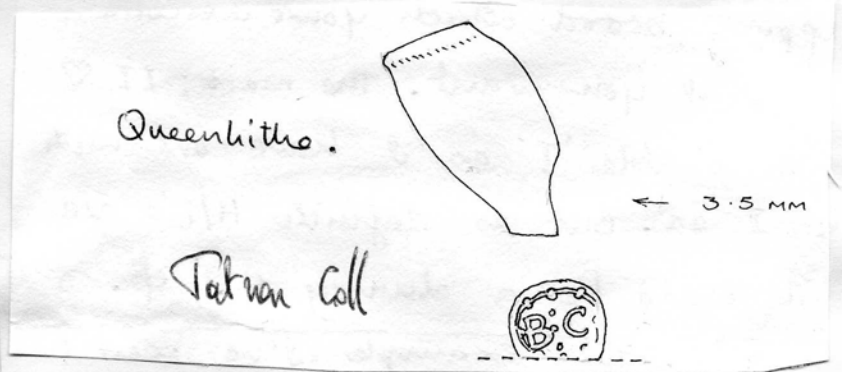 Queenhithe.
← 3.5 MM
Tatman Coll
B.C